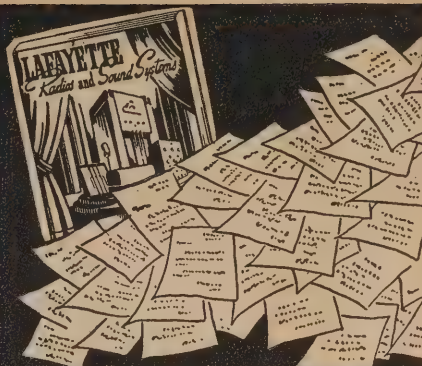 LAFAYETTE
Radios and Sound Systems